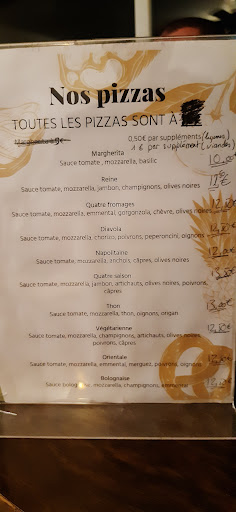 Nos pizzas
TOUTES LES PIZZAS SONT A
Margherita à 9€
0,50€ par suppléments (légumes)
1 € par supplément (viandes)
Margherita
Sauce tomate, mozzarella, basilic
10,00€
Reine
Sauce tomate, mozzarella, jambon, champignons, olives noires
Quatre fromages
Sauce tomate, mozzarella, emmental, gorgonzola, chèvre, olives noires
Diavola
Sauce tomate, mozzarella, chorizo, poivrons, peperoncini, oignons
Napolitaine
Sauce tomate, mozzarella, anchois, câpres, olives noires
Quatre saison
Sauce tomate, mozzarella, jambon, artichauts, olives noires, poivrons,
câpres
Thon
Sauce tomate, mozzarella, thon, oignons, origan
Végétarienne
Sauce tomate, mozzarella, champignons, artichauts, olives noires,
poivrons, câpres
Orientale
Sauce tomate, mozzarella, emmental, merguez, poivrons, oignons
Bolognaise
Sauce bolognaise, mozzarella, champignons, emmental